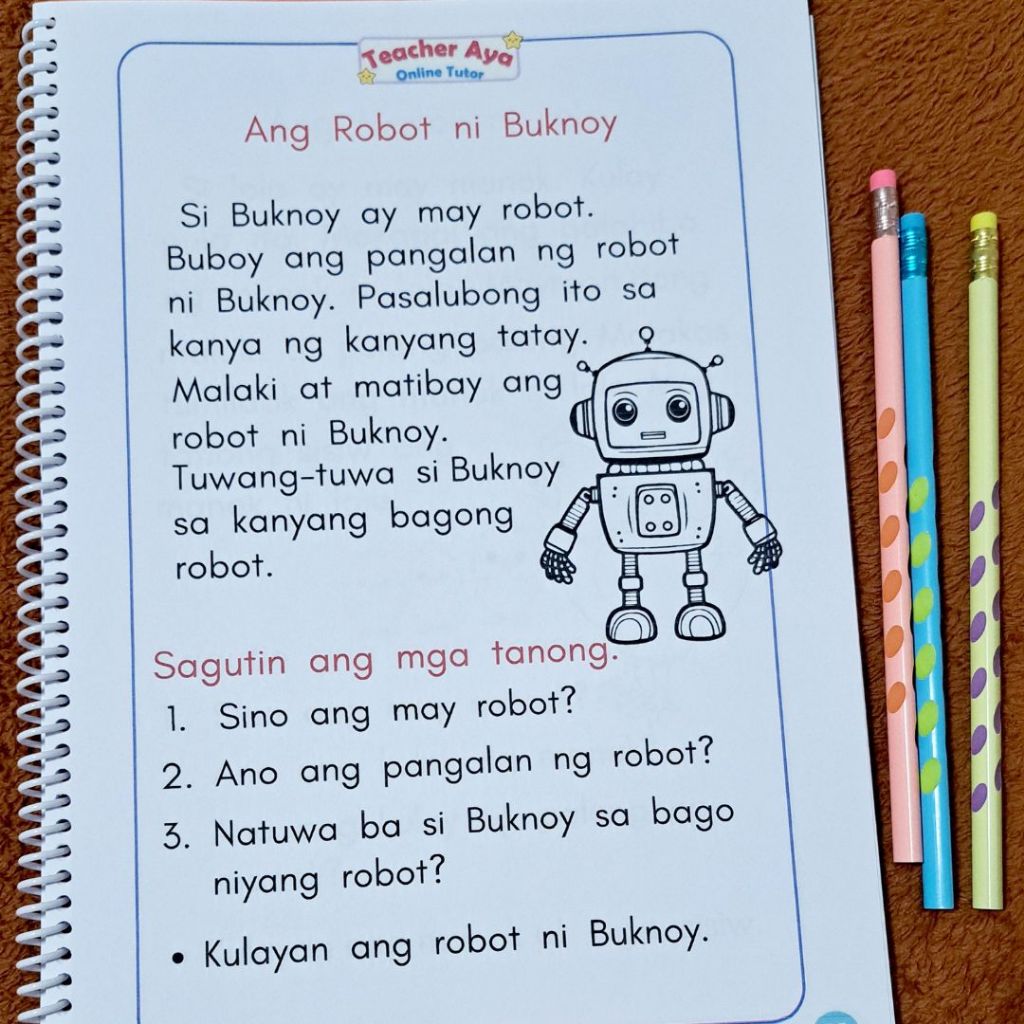 Teacher Aya
Online Tutor
Ang Robot ni Buknoy
Si Buknoy ay may robot.
Buboy ang pangalan ng robot
ni Buknoy. Pasalubong ito sa
kanya ng kanyang tatay.
Malaki at matibay ang
robot ni Buknoy.
Tuwang-tuwa si Buknoy
sa kanyang bagong
robot.
Sagutin ang mga tanong.
1. Sino ang may robot?
2. Ano ang pangalan ng robot?
3. Natuwa ba si Buknoy sa bago
niyang robot?
• Kulayan ang robot ni Buknoy.